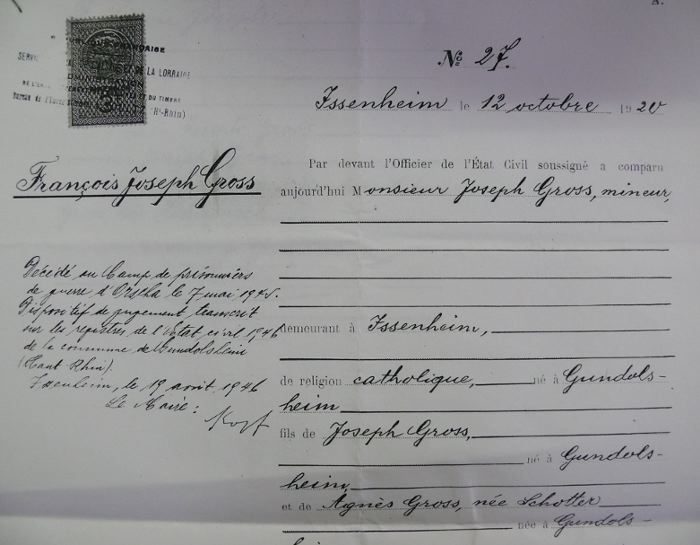 № 27.
RÉPUBLIQUE FRANÇAISE
DE LA LORRAINE
ET DU TIMBRE
Rhin)
Issenheim le 12 octobre 1920
François Joseph Gross
Par devant l'Officier de l'État Civil soussigné a comparu
aujourd'hui Monsieur Joseph Gross, mineur,
Décédé au Camp de prisonniers
de guerre d'Orscha le 7 mai 1945.
Dispositif de jugement transcrit
sur les registres de l'état civil 1946
de la commune de Gundolsheim
(Haut Rhin).
Issenheim, le 19 août 1946
Le Maire:
demeurant à Issenheim,
de religion catholique, né à Gundols-
heim
fils de Joseph Gross,
né à Gundols-
heim,
et de Agnès Gross, née Schotter
née à Gundols-
heim